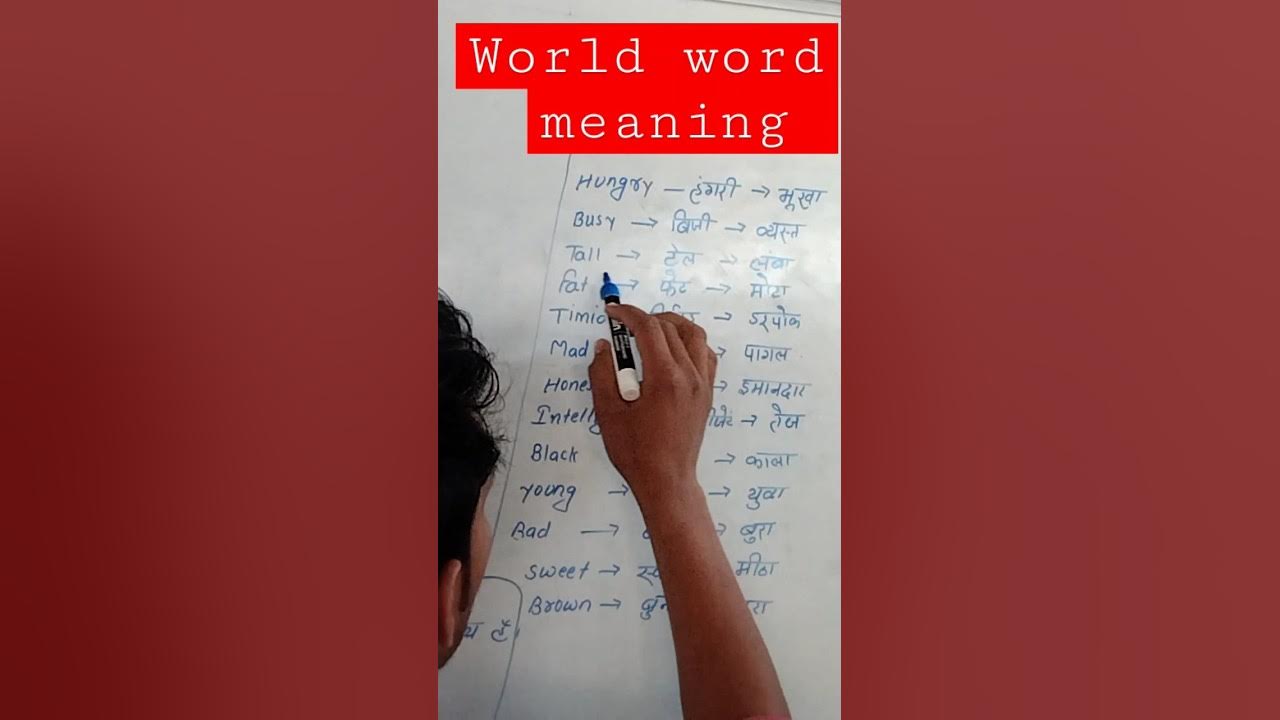 World word
meaning
Hungry – हंगरी → भूखा
Busy → बिजी → व्यस्त
Tall → टेल → लंबा
Fat → फेट → मोटा
Timid → डरपोक
Mad → पागल
Hones → इमानदार
Intelli → तेज
Black → काला
Young → → युवा
Bad → → बुरा
Sweet → मीठा
Brown →